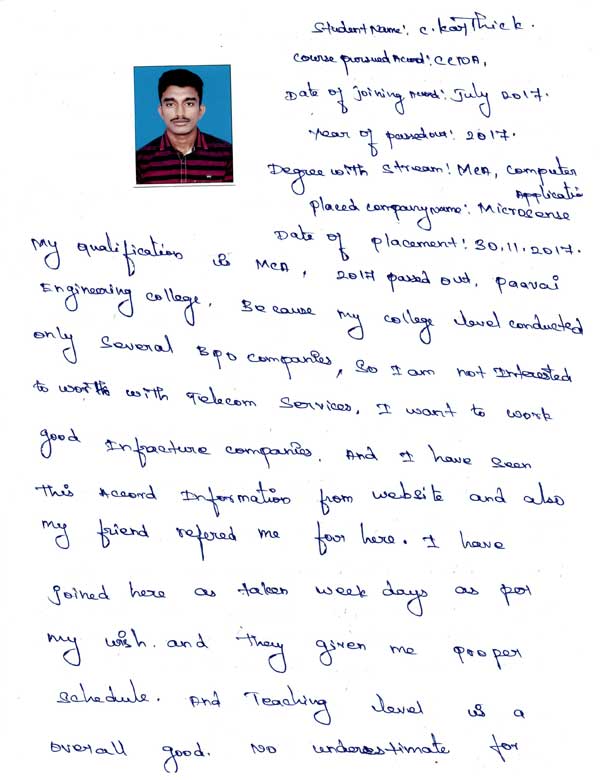 Student Name: C. Karthick.
Course pursued Accord: CCIOA,
Date of joining Accord: July 2017.
Year of passedout: 2017.
Degree with Stream: MCA, Computer
Applicatio
placed company name: Microsense
Date of placement: 30.11.2017.
My qualification is MCA, 2017 passed out, paavai
Engineering college. Because my college level conducted
only Several BPO companies, So I am not Interested
to work with Telecom Services. I want to work
good Infracture companies. And I have seen
this Accord Information from website and also
my friend refered me for here. I have
joined here as taken week days as per
my wish. and they given me proper
schedule. And Teaching level is a
overall good. No underestimate for